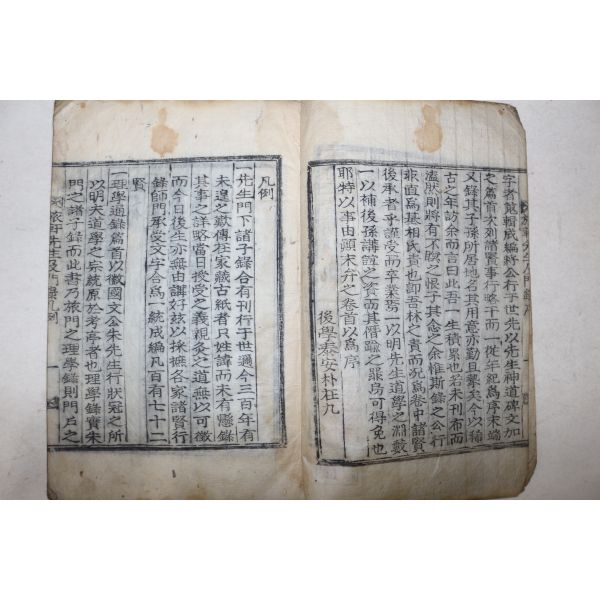 字者蒐輯成編將公行于世先以先生神道碑文加
之篇首次列諸賢事行略干而一從年紀爲序末端
又錄其子孫所居地名其用意亦勤且摯矣今以稀
古之年訪余而言曰此吾一生積累也若未刊布而
溘然則將有不瞑之恨子其念之余惟斯錄之公行
非直爲基相氏貴也卽吾林之責而況爲卷中諸賢
後承者乎謹受而卒業焉一以明先生道學之淵藪
一以補後孫講誼之資而其僭踰之罪烏可得免也
耶特以事由顚末弁之卷首以爲序
後學泰安朴在九
凡例
一先生門下諸子錄合有刊行于世適今三百年有
未遑之歎傳在家藏古紙者只姓諱而未有懸錄
其事之詳略當日授受之義親灸之道無以可徵
而今日後生亦無由講好玆以採摭各家諸賢行
錄師門承受文字合爲一統成編凡百有七十二
賢
一理學通錄篇首以徽國文公朱先生行狀冠之所
以明天道學之宗統原於考亭者也理學錄實朱
門之諸子錄而此書乃旅門之理學錄則門戶之
旅軒先生及門錄凡例
一